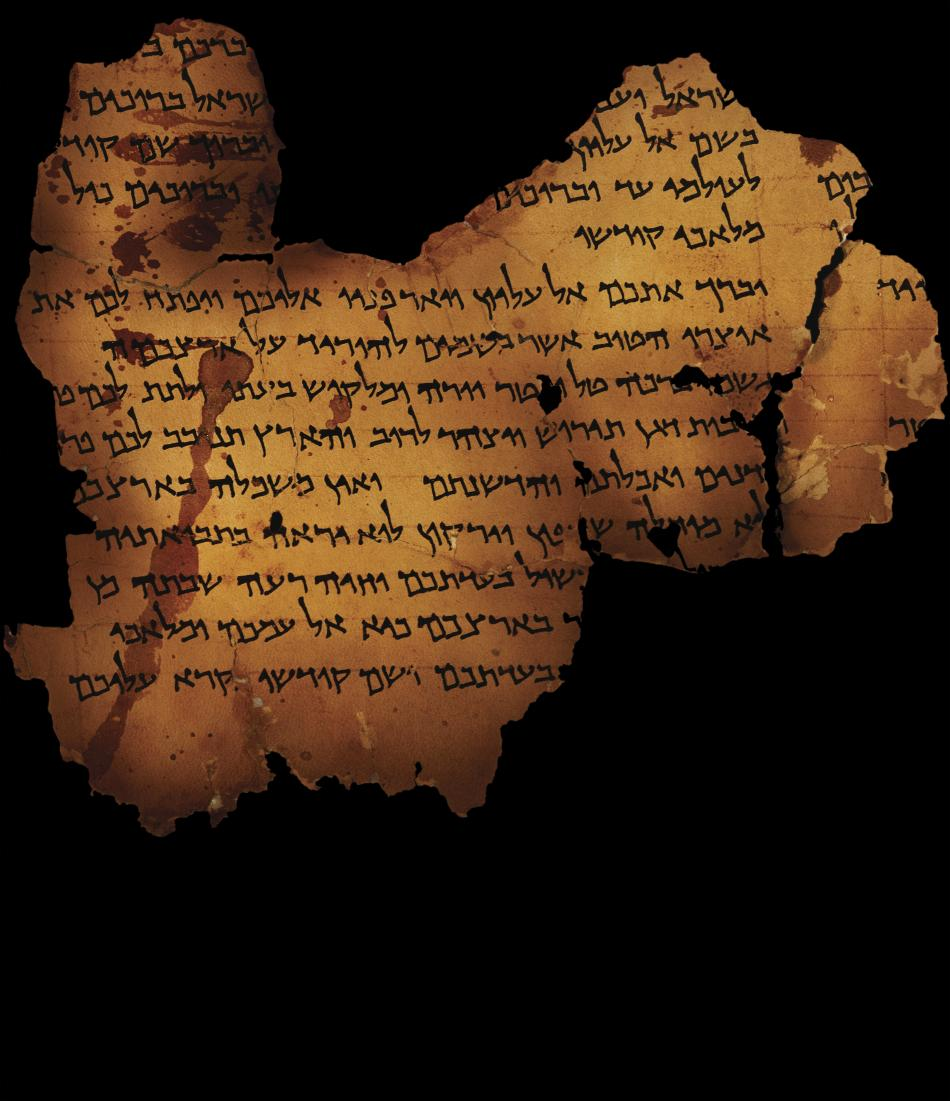 ברכם
שראל ועב ישראל ברוכים
בשם אל עליון וברוך שם קוד
לעולמי עד וברוכים וברוכים כול
מלאכי קודשו
יברך אתכם אל עליון ויאר פניו אליכם ויפתח לכם את
אוצרו הטוב אשר בשמים להוריד על ארצכם
גשמי ברכה טל ומטר יורה ומלקוש בעתו ולתת לכם
דגן תירוש ויצהר לרוב והארץ תנובב לכם
ואכלתם והדשנתם ואין משכלה בארצכ
ולא מוחלה שדפון וירקון לוא יראה בתבואתיה
שול בעדתכם וחיה רעה שבתה מן
בארצכם כיא אל עמכם ומלאכי
בעדתכם ושם קודשו נקרא עליכם